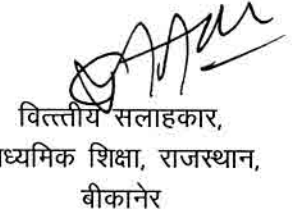 वित्त्तीय सलाहकार,
ध्यमिक शिक्षा, राजस्थान,
बीकानेर